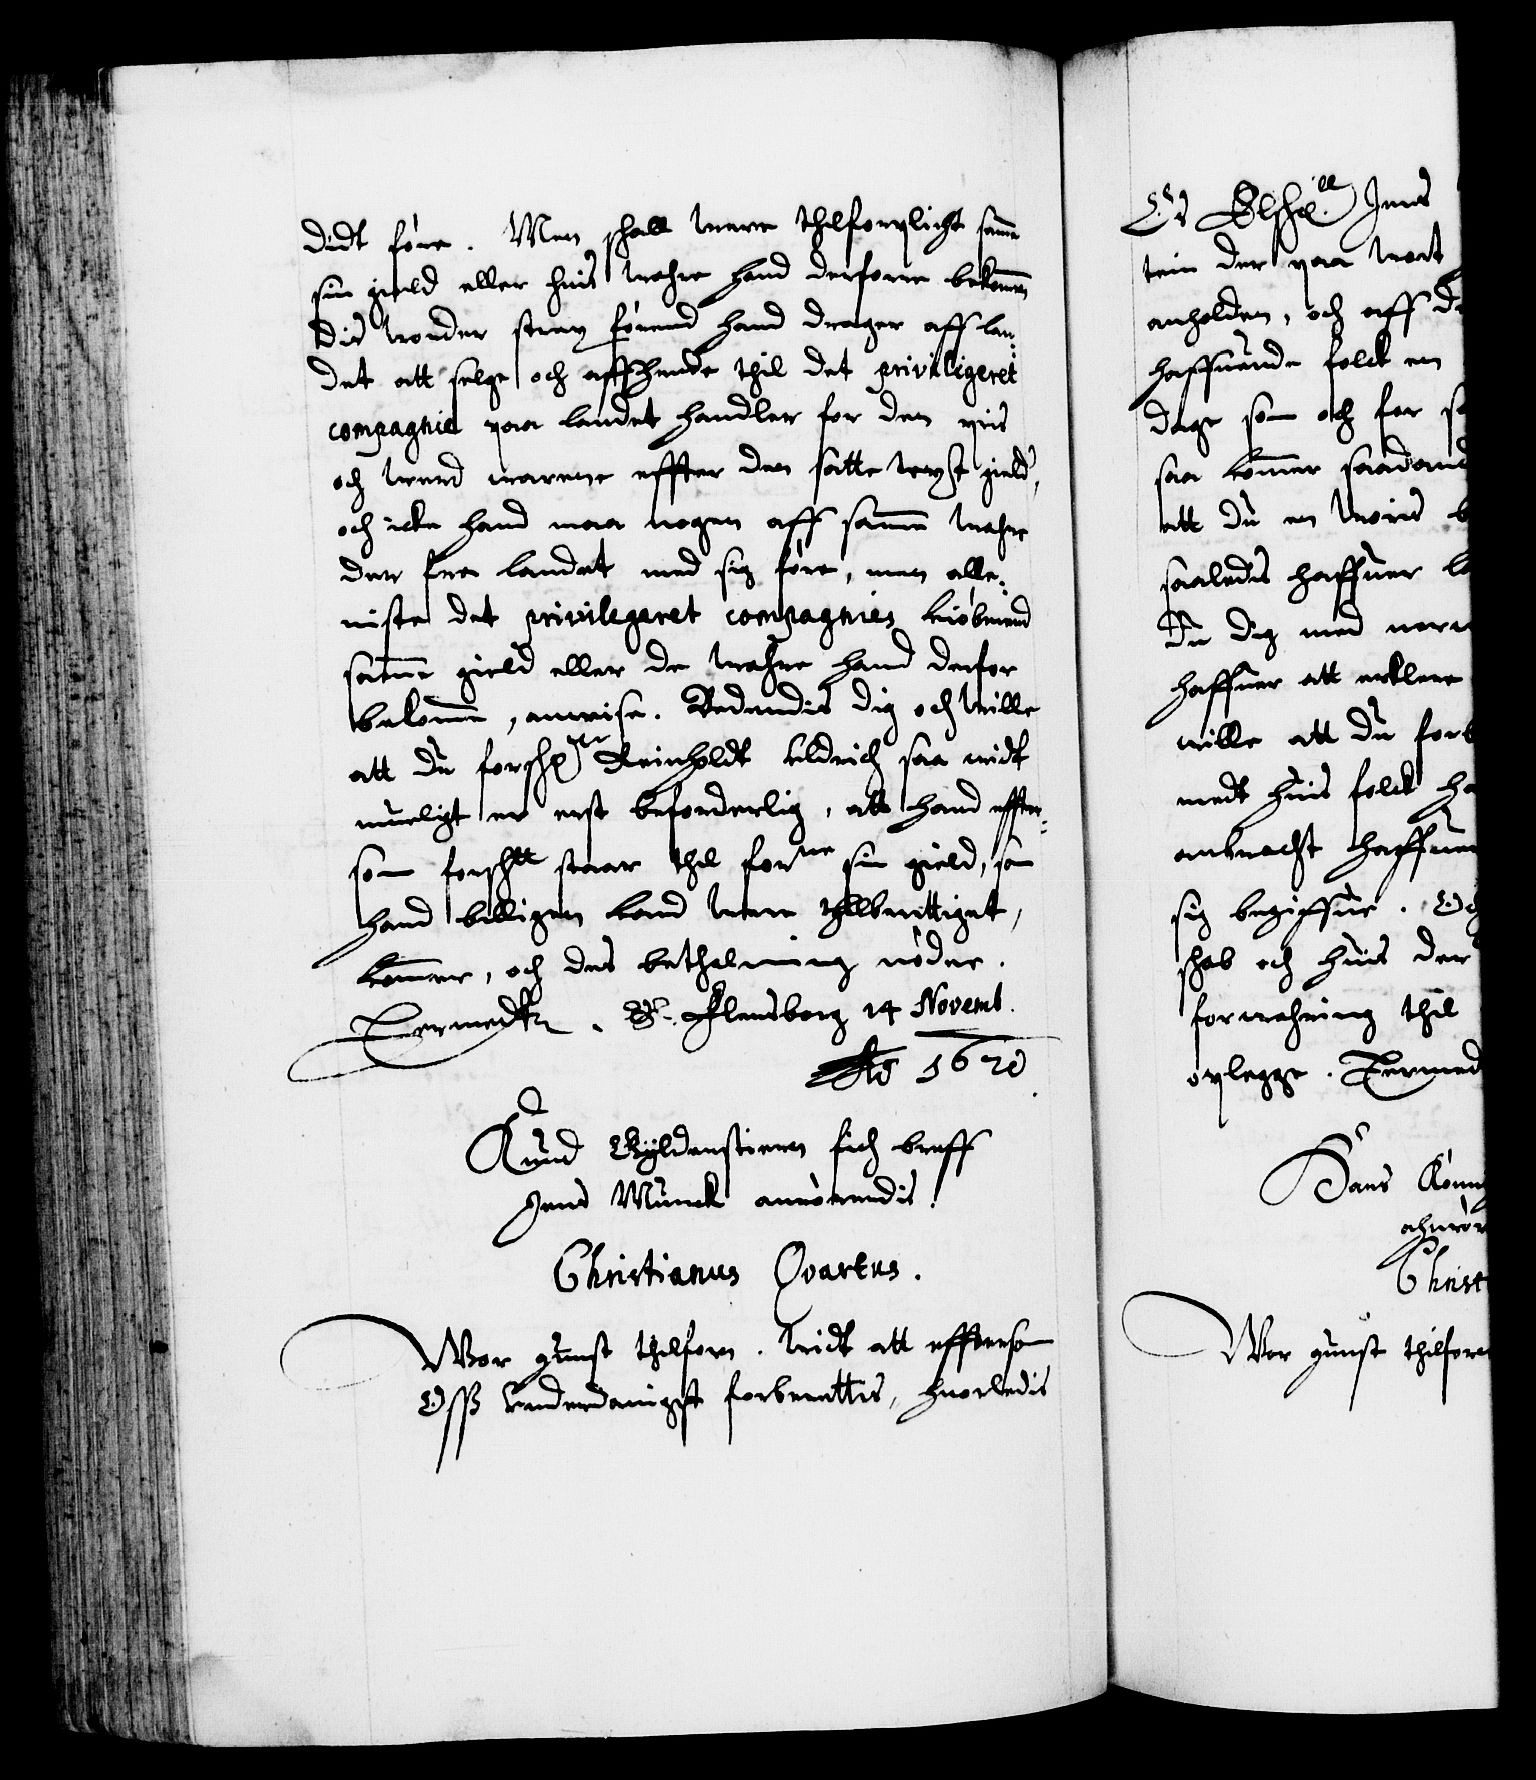 didt føre. Men schall were thilforplicht samme
sin gield eller huis wahre hand derforre bekommer
dis wonder straf førend hand drager aff lan¬
det att selge och affhende thil det privilligeret
compagnie paa landet handler for den pris
och werd warene effter den satte taxst gield,
och icke hand maa nogen aff samme wahre
der fra landet med sig føre, men alle¬
niste det privilegeret compagnies kiøbmend
samme gield eller de wahre hand derfor
bekomme, anwise. Bedendis dig och wille
att du forschne Reinholdt Eldrich saa widt
mueligt er erst beforderlig, att hand effter¬
som forschtt staar thil forne sin gield, som
hand billigen kand were thillberettiget,
kommer, och des bethalning nøder.
Dermedt. Ex. Flensborg 14 Novemb.
Ao 1620
Knud Gyldenstiern fich breff
Jens Munck anrørendis.
Christianus Qvartus.
Wor gunst thilforn. Widt att efftersom
Oss underdanigst forberettis, huorledis
Os Elschell. Jens
tein der paa wort
anholden, och aff
haffuende folck en
dage som och for
saa kommer saadand
att du en woris
saaledis haffuer
du dig med
haffuer att erklere
wille att du
medt huis folck
anbracht haffuer
sig begiffue.
schab och huis der
forwahring thil
oplegge. Dermed
Hans
Christ
Wor gunst thilforn